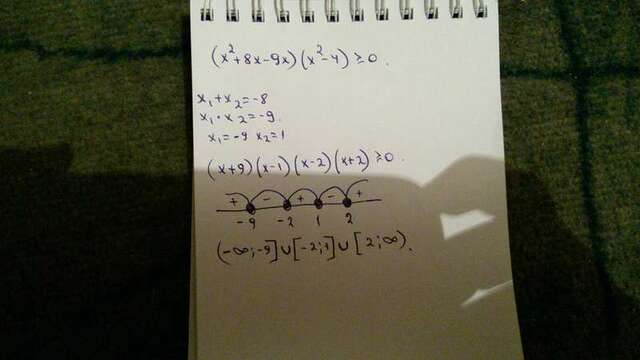 (x²+8x-9x)(x²-4)≥0.
x₁+x₂=-8
x₁·x₂=-9.
x₁=-9 x₂=1
(x+9)(x-1)(x-2)(x+2)≥0.
+ - + - +
-9 -2 1 2
(-∞;-9]∪[-2;1]∪[2;∞).